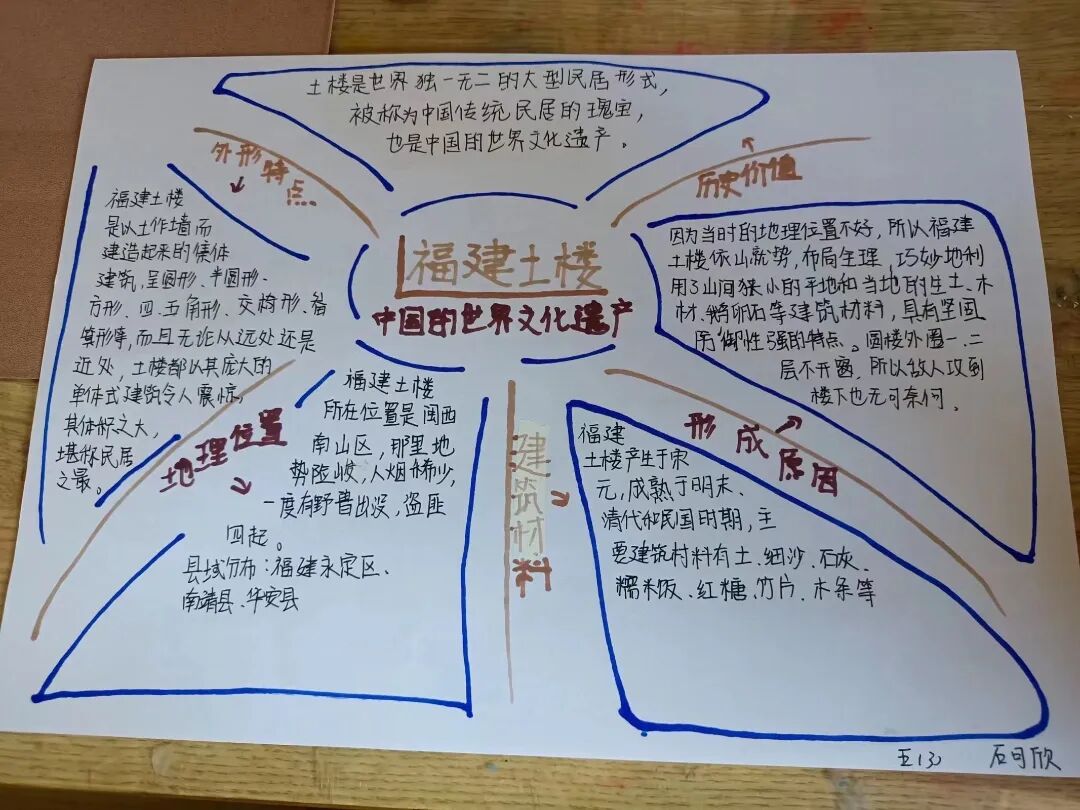 土楼是世界独一无二的大型民居形式，
被称为中国传统民居的瑰宝，
也是中国的世界文化遗产。
外形特点
历史价值
福建土楼
中国的世界文化遗产
福建土楼
是以土作墙而
建造起来的集体
建筑，呈圆形、半圆形、
方形、四、五角形、交椅形、
箕形等，而且无论从远处还是
近处，土楼都以其庞大的
单体式建筑令人震惊，
其体好之大，
堪称民居
之最。
因为当时的地理位置不好，所以福建
土楼依山就势，布局生理，巧妙地利
用了山间狭小的平地和当地的生土、木
材、鹅卵石等建筑材料，具有坚固
防御性强的特点。圆楼外圈一、二
层不开窗，所以敌人攻到
楼下也无可奈何。
地理位置
福建土楼
所在位置是闽西
南山区，那里地
势险峻，人烟稀少，
一度有野兽出没，盗匪
四起。
县域分布：福建永定区、
南靖县、华安县
建筑材料
形成原因
福建
土楼产生于宋
元，成熟于明末、
清代和民国时期，主
要建筑村料有土、细沙、石灰、
糯米饭、红糖、竹片、木条等